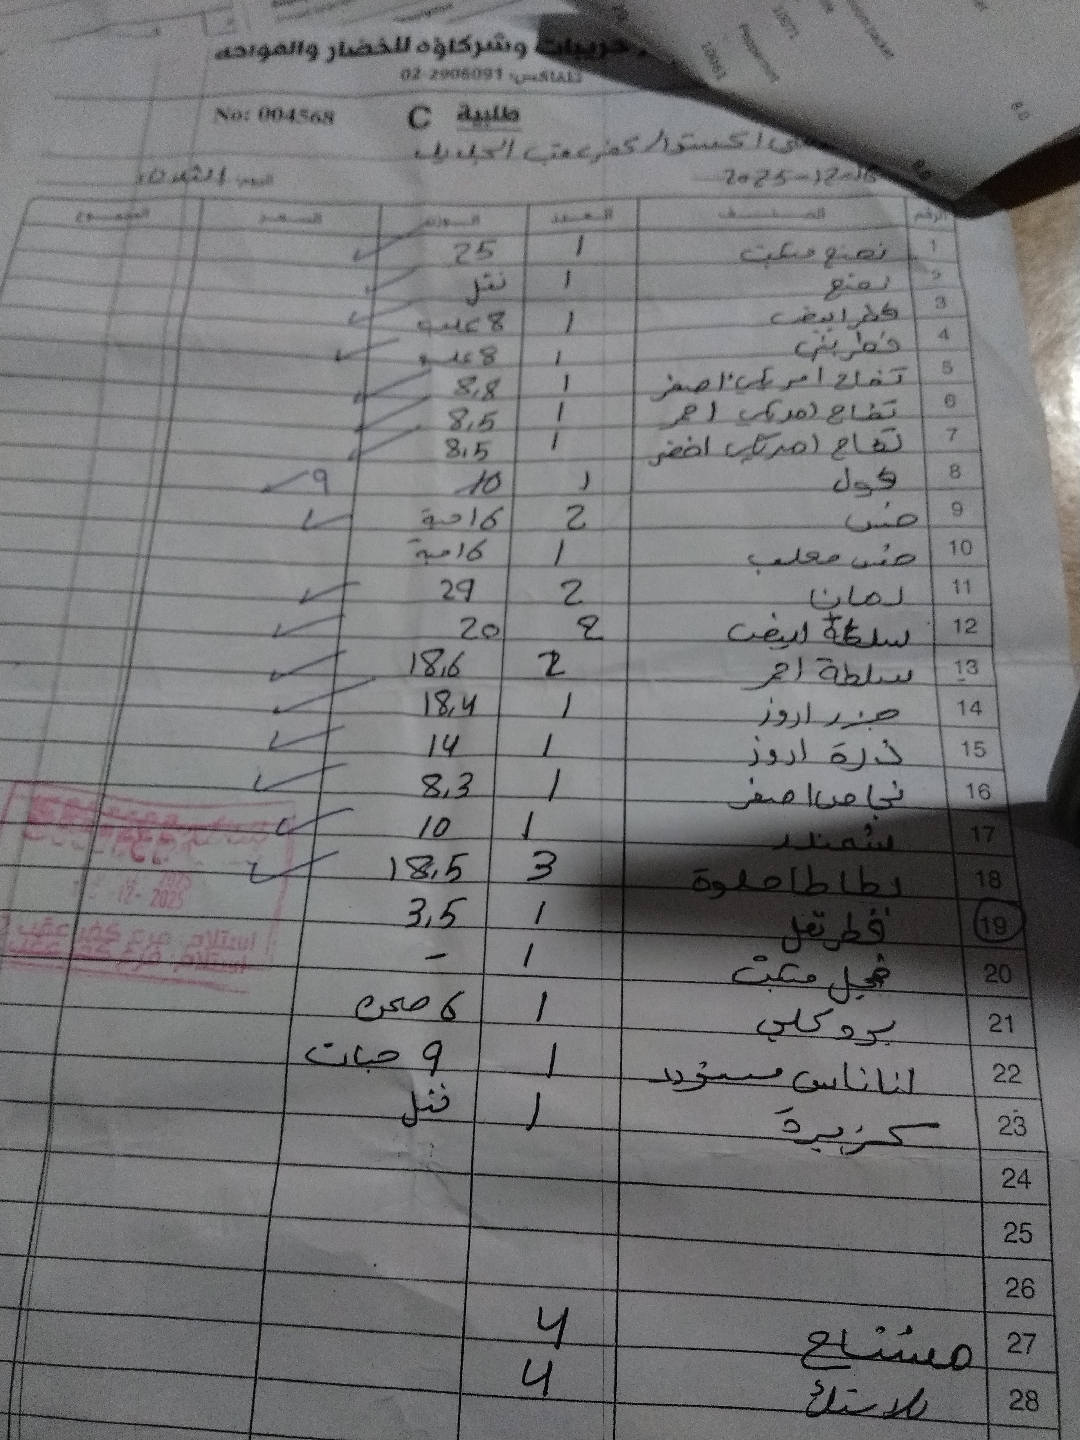 حريبات وشركاؤه للخضار والفواكه
تلفاكس: 02-2906091
No: 004568 C طلبية
كفر عقب الجديد
2025-12-
اليوم: الثلاثاء
الرقم الصنف العدد الوزن السعر المجموع
1 نعنع مكبت 1 25
2 نعنع 1 فتل
3 فطر ابيض 1 8 علب
4 فطر بني 1 8 علب
5 تفاح امريكي اصفر 1 8,8
6 تفاح امريكي احمر 1 8,5
7 تفاح امريكي اخضر 1 8,5
8 كول 1 10 9
9 خس 2 16 حبة
10 خس معلب 1 16 حبة
11 رمان 2 29
12 سلطة ابيض 2 20
13 سلطة احمر 2 18,6
14 جزر اروز 1 18,4
15 ذرة اروز 1 14
16 نجاص اصفر 1 8,3
17 شمندر 1 10
18 بطاطا حلوة 3 18,5
19 1 3,5
20 فجل مكبت 1 -
21 بروكلي 1 6 صحن
22 اناناس مستورد 1 9 حبات
23 كزبرة 1 فتل
24
25
26
27 مشتاح 4
28 بلاستك 4
12-2025
استلام: فرع كفر عقب